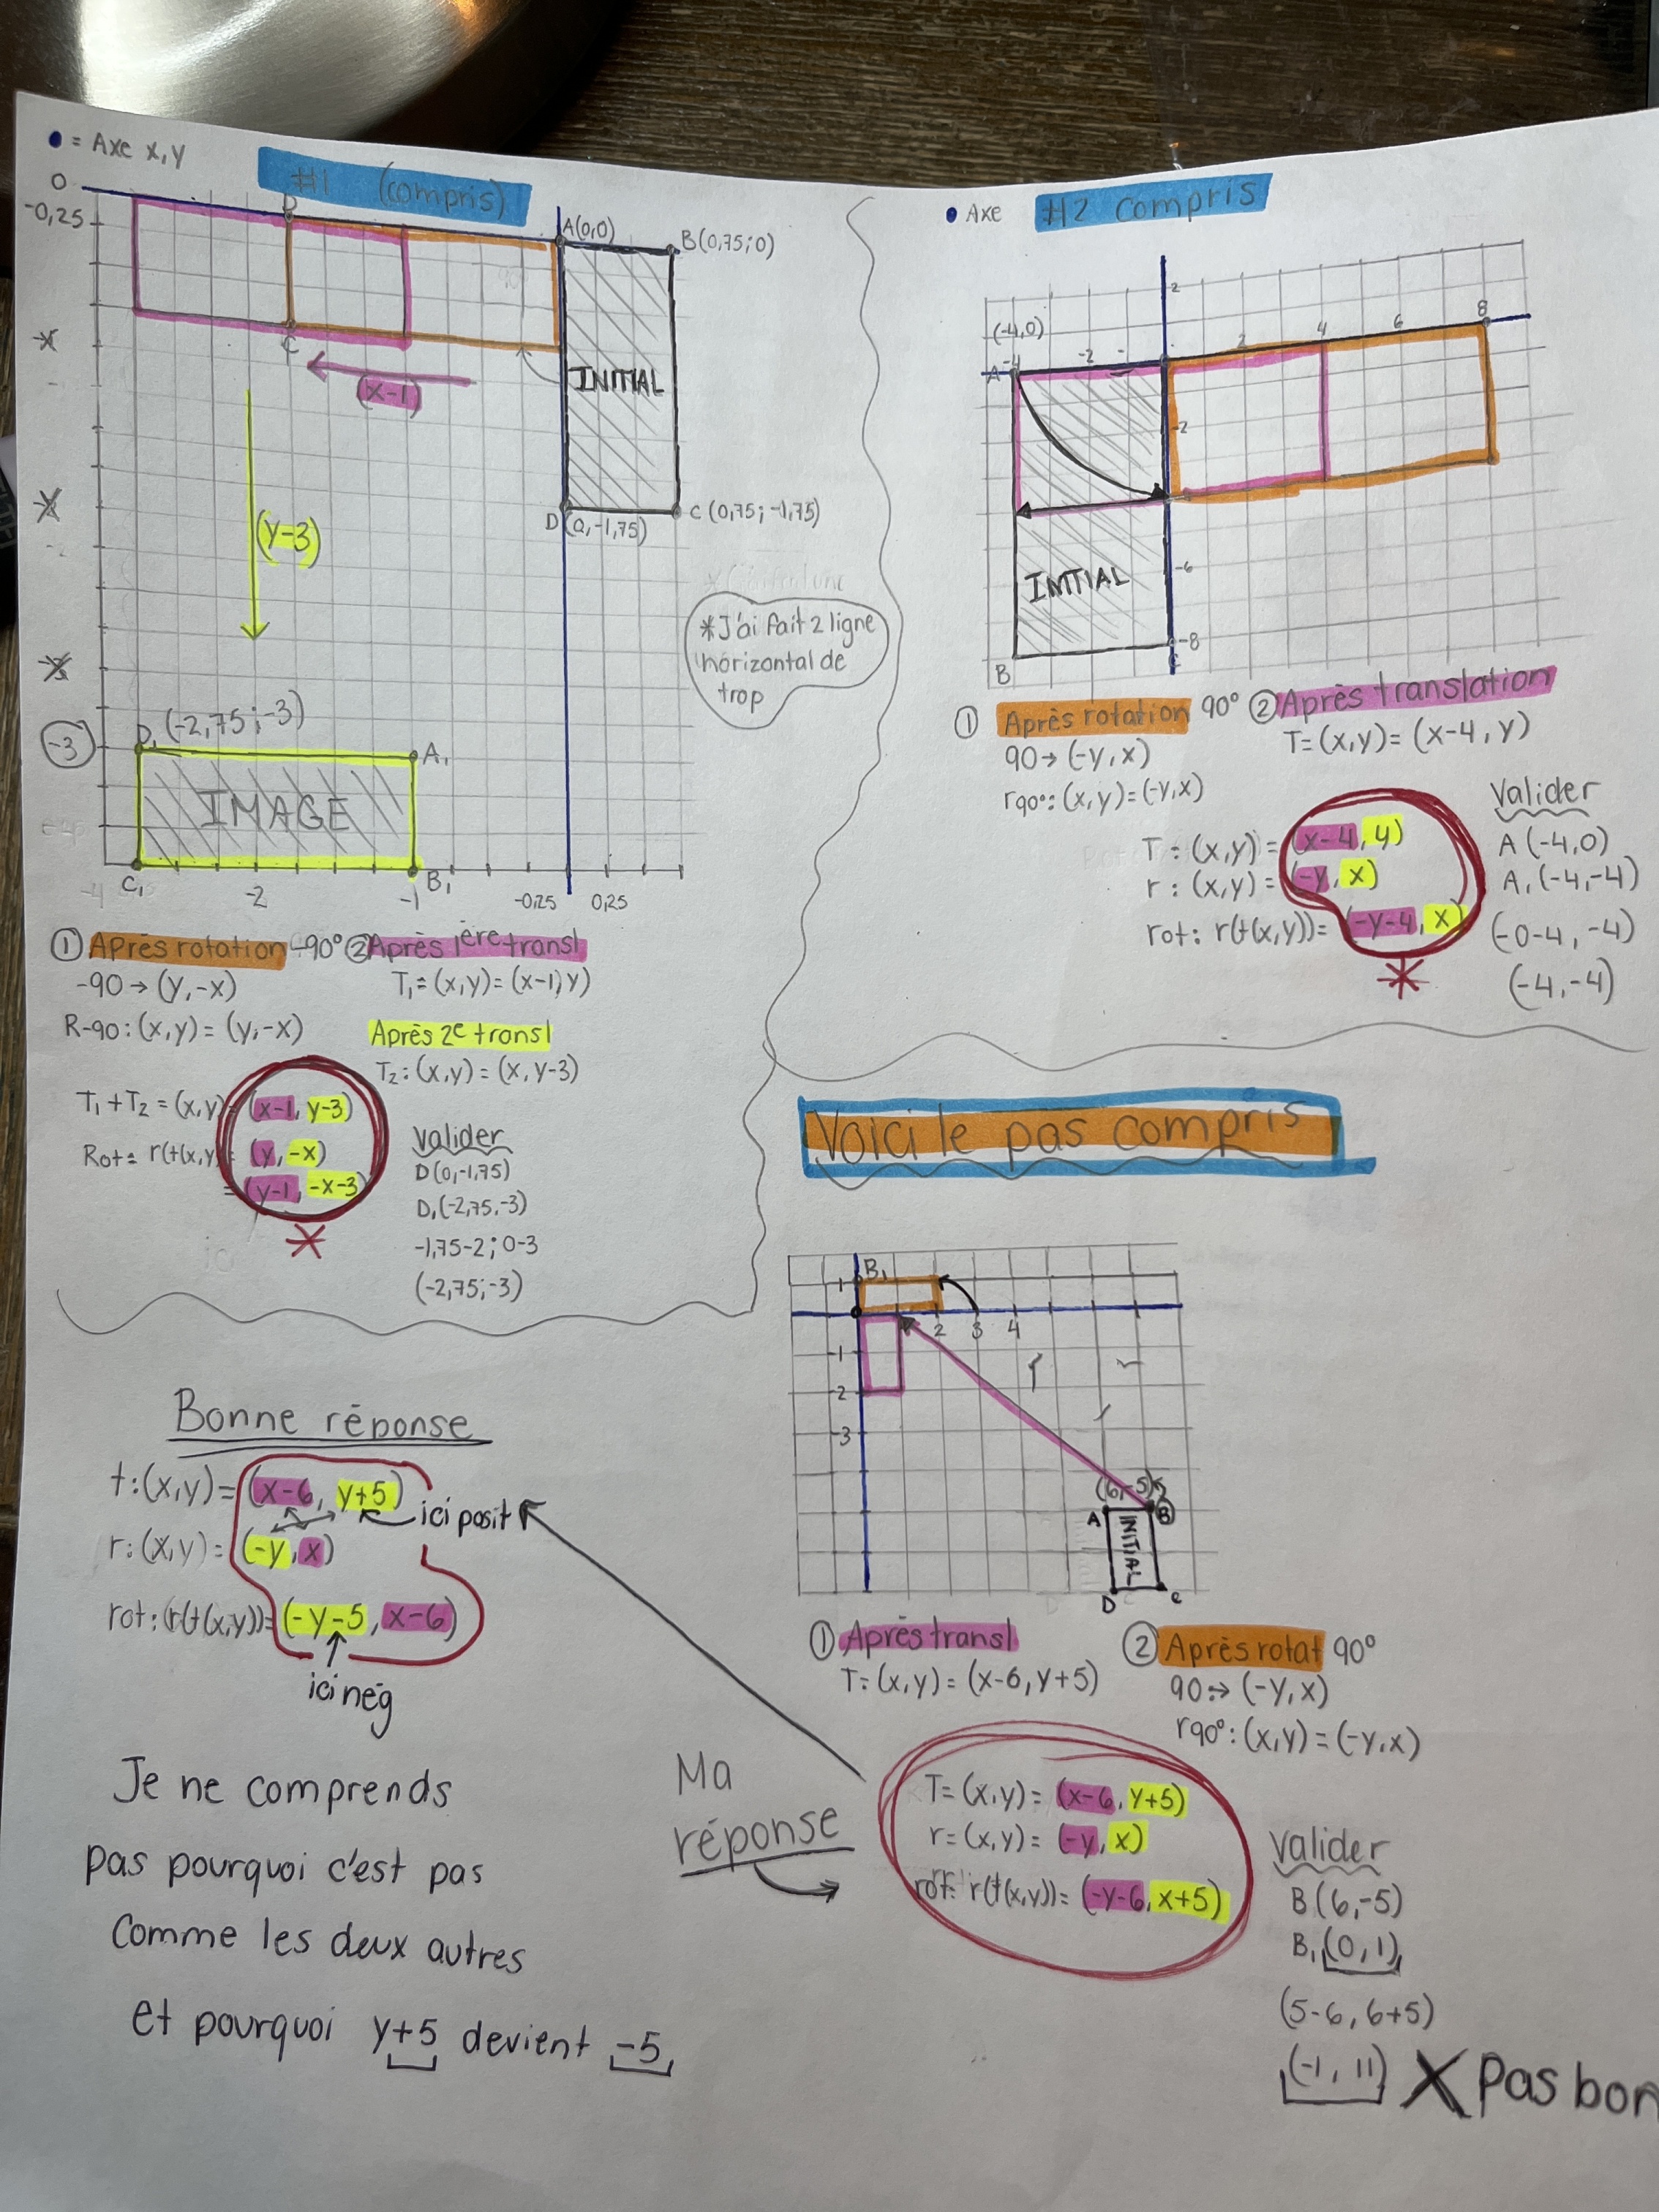 • = Axe x,y
#1 (compris)
0
-0,25
D
A(0,0)
B(0,75;0)
C
INITIAL
(x-1)
(y-3)
D(0,-1,75)
C(0,75;-1,75)
*J'ai fait 2 ligne
horizontal de
trop
D₁ (-2,75;-3)
-3
A₁
IMAGE
C₁
B₁
-4
-2
-1
-0,25
0,25
① Après rotation -90°
-90 → (y,-x)
R-90: (x,y) = (y,-x)
② Après 1ère transl
T₁ = (x,y) = (x-1, y)
Après 2e transl
T₂: (x,y) = (x, y-3)
T₁ + T₂ = (x,y) = (x-1, y-3)
Rot = r(t(x,y) = (y, -x)
= (y-1, -x-3)
*
Valider
D(0,-1,75)
D₁(-2,75,-3)
-1,75-2; 0-3
(-2,75;-3)
• Axe
#2 compris
2
(-4,0)
A
-4
-2
2
4
6
8
-2
-6
INITIAL
-8
B
C
① Après rotation 90°
90 → (-y,x)
r90°: (x,y) = (-y,x)
② Après translation
T = (x,y) = (x-4, y)
T = (x,y) = (x-4, y)
r: (x,y) = (-y, x)
rot: r(t(x,y)) = (-y-4, x)
*
Valider
A (-4,0)
A₁ (-4,-4)
(-0-4, -4)
(-4,-4)
Voici le pas compris
B₁
1
2
3
4
-1
-2
-3
(6,-5)
A
B
INITIAL
D
C
① Après transl
T = (x,y) = (x-6, y+5)
② Après rotat 90°
90 → (-y,x)
r90°: (x,y) = (-y,x)
Bonne réponse
t: (x,y) = (x-6, y+5)
ici posit
r: (x,y) = (-y, x)
rot: (r(t(x,y)) = (-y-5, x-6)
ici nég
Ma
réponse
T = (x,y) = (x-6, y+5)
r = (x,y) = (-y, x)
rot: r(t(x,y)) = (-y-6, x+5)
Valider
B (6,-5)
B₁ (0,1)
(5-6, 6+5)
(-1, 11) X Pas bon
Je ne comprends
pas pourquoi c'est pas
comme les deux autres
et pourquoi y+5 devient -5